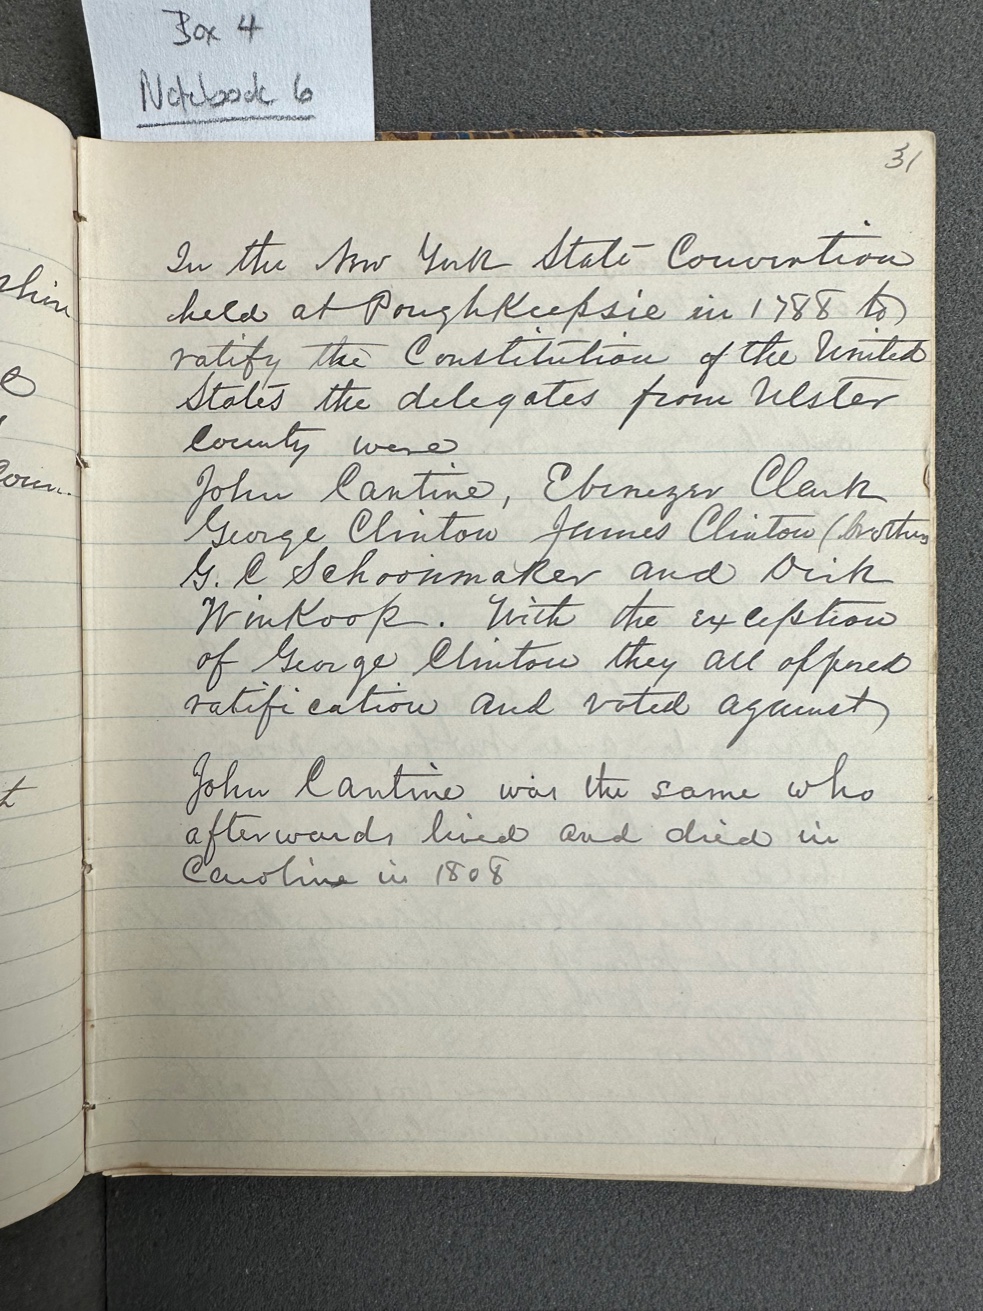 Box 4
Notebook 6
31
In the New York State Convention
held at PoughKeepsie in 1788 to
ratify the Constitution of the United
States the delegates from Ulster
County were
John Cantine, Ebenezer Clark
George Clinton James Clinton (brothers
G. C Schoonmaker and Dirk
WinKoop. With the exception
of George Clinton they all opposed
ratification and voted against
John Cantine was the same who
afterwards lived and died in
Caroline in 1808